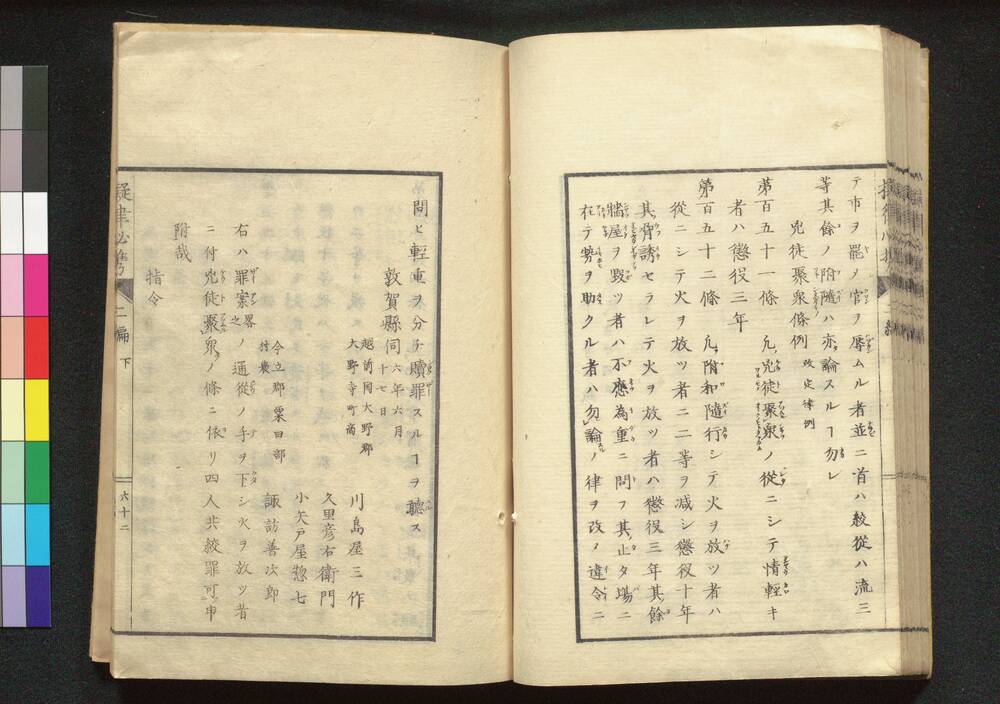 テ市ヲ罷ノ官ヲ辱ムル者並ニ首ハ絞從ハ流三
等其餘ノ附隨ハ亦論スルヿ勿レ
兇徒聚衆條例 改定律例
第百五十一條 凡兇徒聚衆ノ從ニシテ情輕キ
者ハ懲役三年
第百五十二條 凡附和隨行シテ火ヲ放ツ者ハ
從ニシテ火ヲ放ツ者ニ二等ヲ減シ懲役十年
其脅誘セラレテ火ヲ放ツ者ハ懲役三年其餘
牆屋ヲ毀ツ者ハ不應為重ニ問フ其止タ場ニ
在テ勢ヲ助クル者ハ勿論ノ律ヲ改メ違令ニ
問ヒ輕重ヲ分チ贖罪スルヿヲ聽ス
敦賀縣伺 六年六月
十七日
越前國大野郡
大野寺町商
川島屋三作
久里彦右衛門
小矢戸屋惣七
今立郡粟田部
村農
諏訪善次郎
右ハ罪案之畧ノ通從ノ手ヲ下シ火ヲ放ツ者
ニ付兇徒聚衆ノ條ニ依リ四人共絞罪可申
附哉
指令
擬律必携
二編 下
六十二